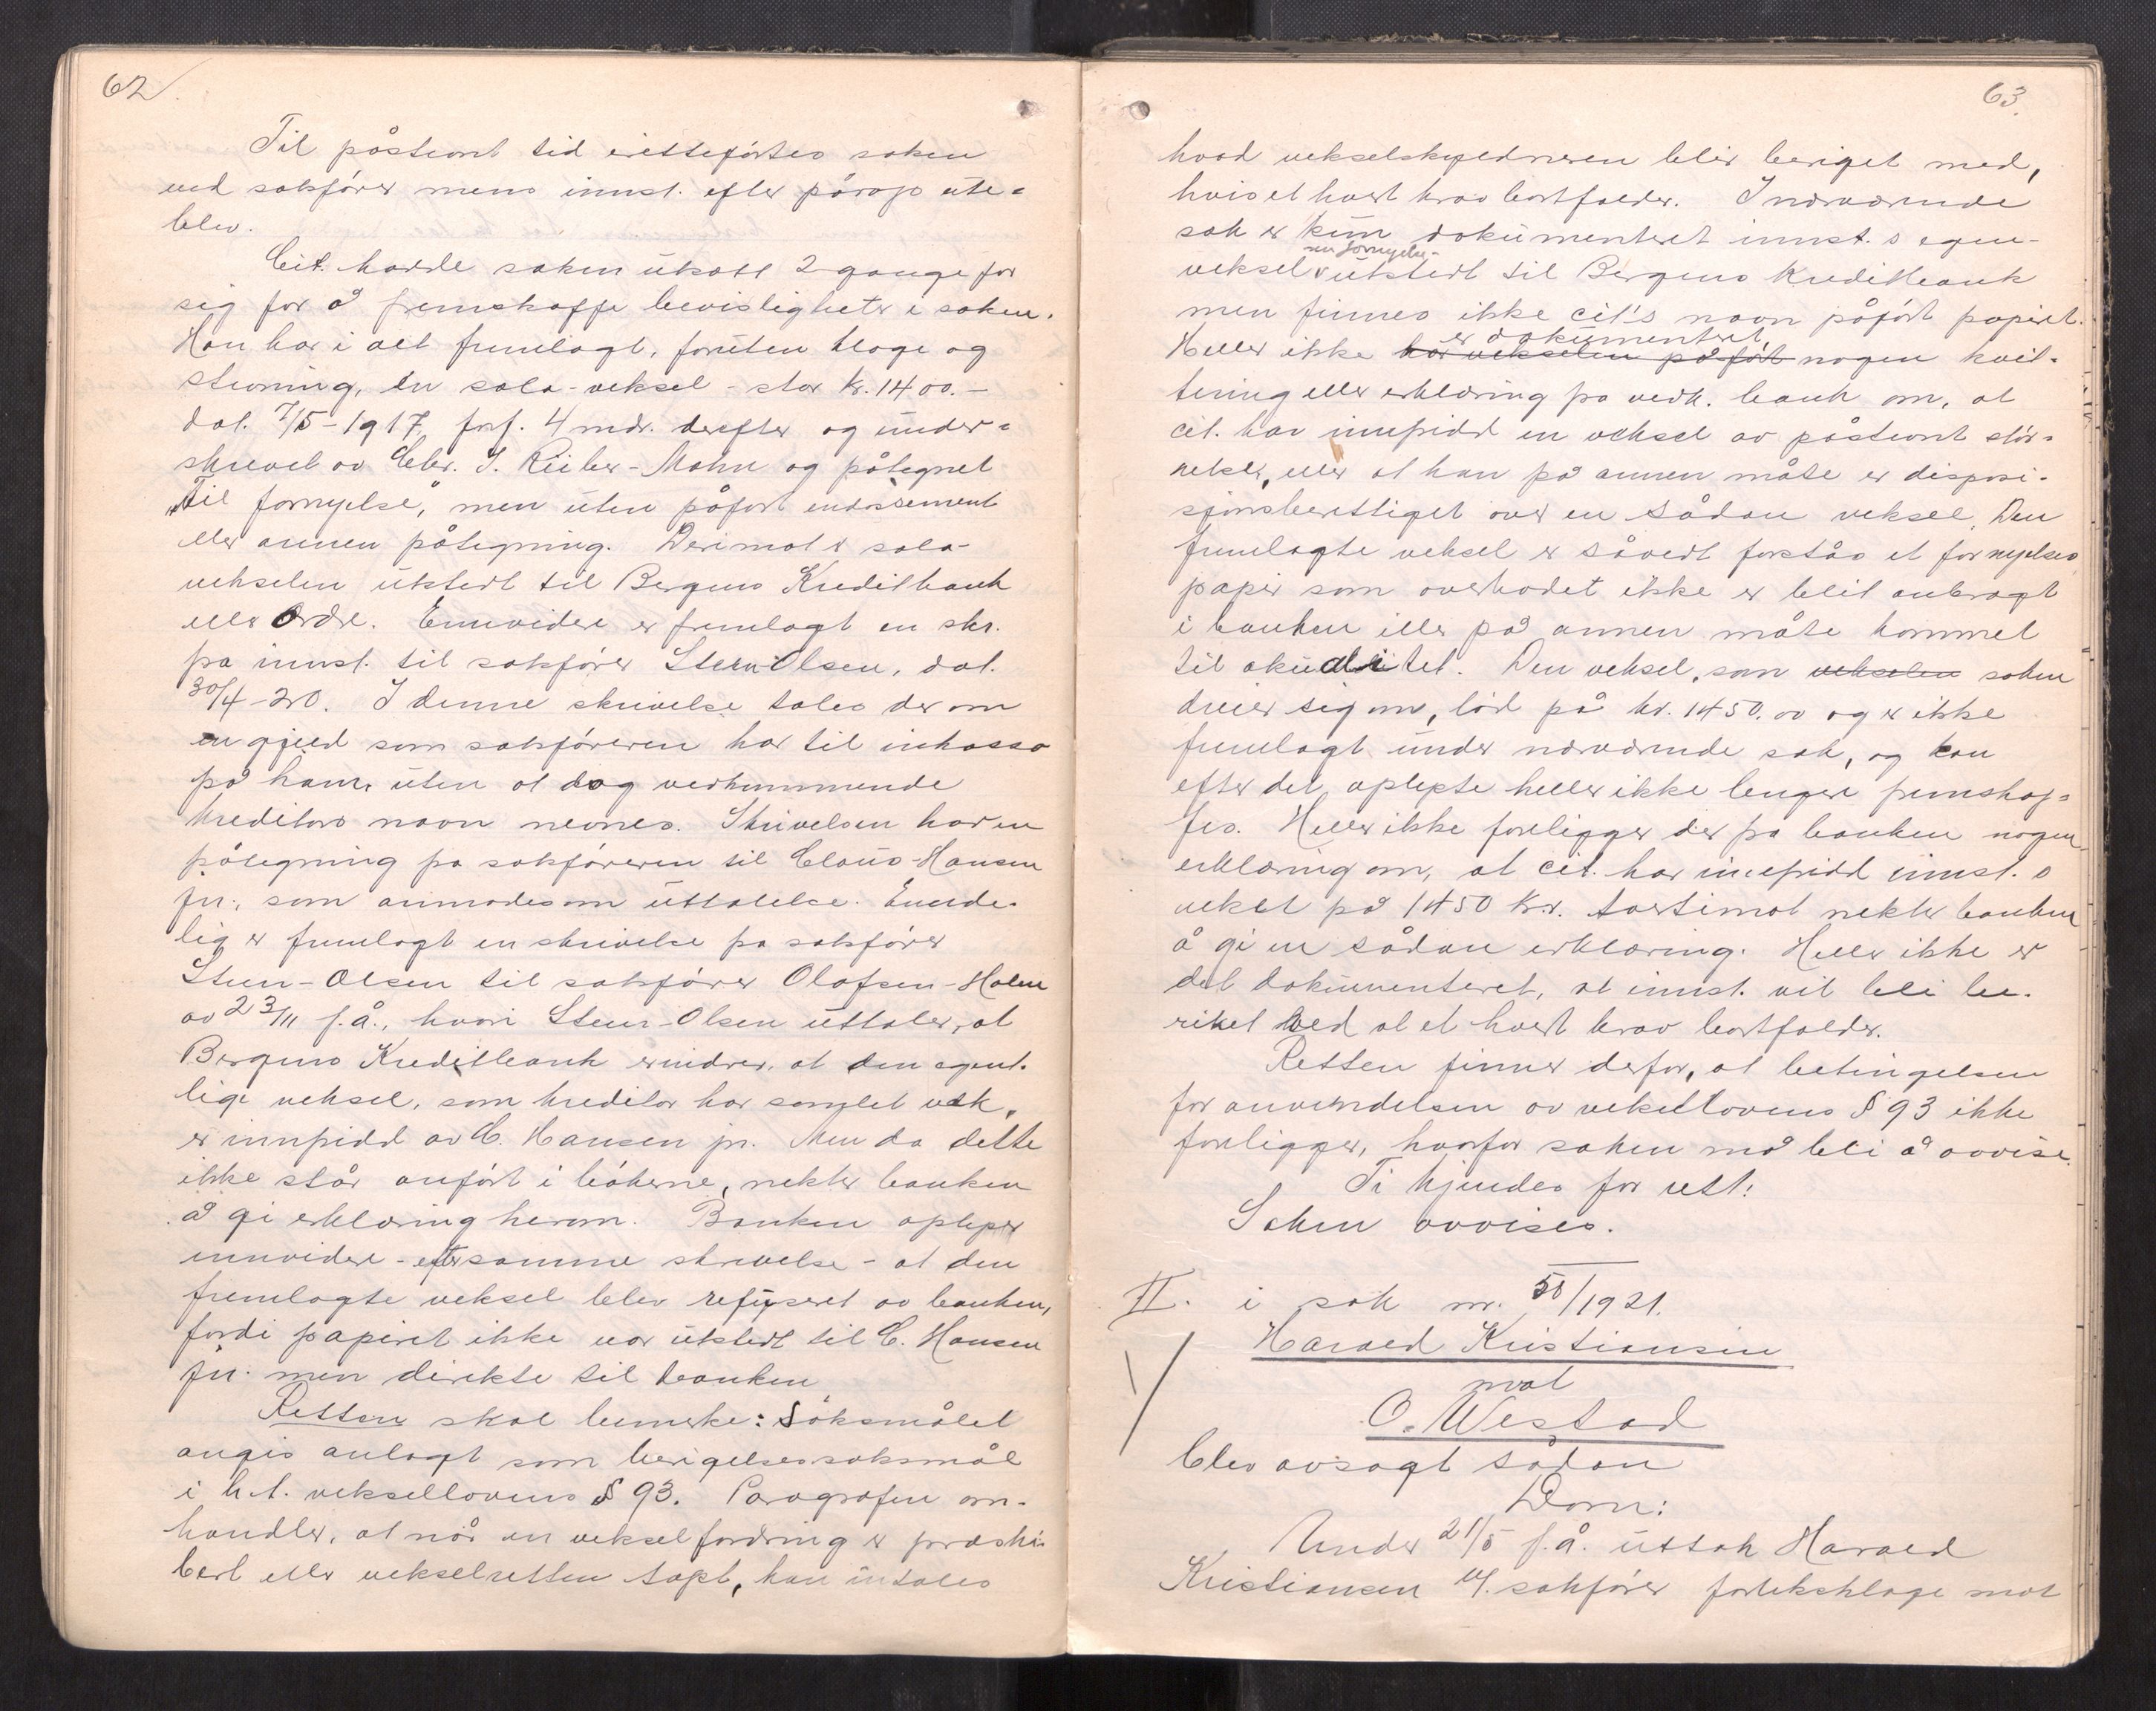 62
Til påstevnt tid irettefórtes saken
ved sakfórer mens innst. efter påråp ute=
blev.
Cit. hadde saken utsatt 2 gange for
sig for å fremskaffe bevisligheter i saken.
Han har i alt fremlagt, foruten klage og
stevning, én sola-veksel - stor kr. 1400.-
dat. 7/5-1917, forf. 4 mdr. derefter og under=
skrevet av Chr. J. Rieber-Mohn og påtegnet
"til fornyelse", men uten påfort endossement
eller annen påtegning. Derimot er sola-
vekselen utstedt til Bergens Kreditbank
eller Ordre. Ennvidere er fremlagt en skr.
fra innst. til sakfórer Steen-Olsen, dat.
30/4-20. I denne skrivelse tales der om
en gjeld som sakfóreren har til inkasso
på ham, uten at dog vedkommende
kreditors navn nevnes. Skrivelsen har en
påtegning fra sakfóreren til Claus Hansen
jr., som anmodes om uttalelse. Ende-
lig er fremlagt en skrivelse fra sakfórer
Steen-Olsen til sakfórer Olafsen-Holm
av 23/11 f.å., hvori Steen-Olsen uttaler, at
Bergens Kreditbank erindrer, at den egent-
lige veksel, som kreditor har somlet vek,
er innfridd av C. Hansen jr. Men da dette
ikke står anfórt i bókerne, nekter banken
å gi erklæring herom. Banken oplyser
ennvidere - efter samme skrivelse - at den
fremlagte veksel blev refuseret av banken,
fordi papiret ikke var utstedt til C. Hansen
jr. men direkte til banken
Retten skal bemerke: Sóksmålet
angis anlagt som berigelsessaksmål
i h.t. veksellovens § 93. Paragrafen om-
handler, at når en vekselfordring er præskri-
bert eller vekselretten tapt, kan intales
63.
hvad vekselskyldneren blir beriget med,
hvis et hvert krav bortfalder. I nærværende
sak er kun dokumenteret innst.s egen-
en fornyelse-
veksel v utstedt til Bergens Kreditbank
men finnes ikke cit's navn påfórt papiret.
er dokumenteret
Heller ikke har vekselen påfórt nogen kvit-
tering eller erklæring fra vedk. bank om, at
cit. har innfridd en veksel av påstevnt stór-
relse, eller at han på annen måte er disposi-
sjonsberettiget over en sådan veksel. Den
fremlagte veksel er såvidt forståes et fornyelses
papir som overhodet ikke er blit anbragt
i banken eller på annen måte kommet
til akualitet. Den veksel, som vekselen saken
dreier sig om, lód på kr. 1450,00 og er ikke
fremlagt under nærværende sak, og kan
efter det oplyste heller ikke lenger fremskaf=
fes. Heller ikke foreligger der fra banken nogen
erklæring om, at cit. har innfridd innst.s
veksel på 1450 kr. tvertimot nekter banken
å gi en sådan erklæring. Heller ikke er
det dokumenteret, at innst. vil bli be-
riket ved at et hvert krav bortfalder.
Retten finner derfor, at betingelsen
for anvendelsen av veksellovens § 93 ikke
foreligger, hvorfor saken må bli å avvise.
Ti kjendes for rett:
Saken avvises.
II. i sak nr. 58/1921.
Harald Kristiansen
mot
O. Westad
blev avsagt sådan
Dom:
Under 21/5 f.å. uttok Harald
Kristiansen v/ sakfórer forliksklage mot